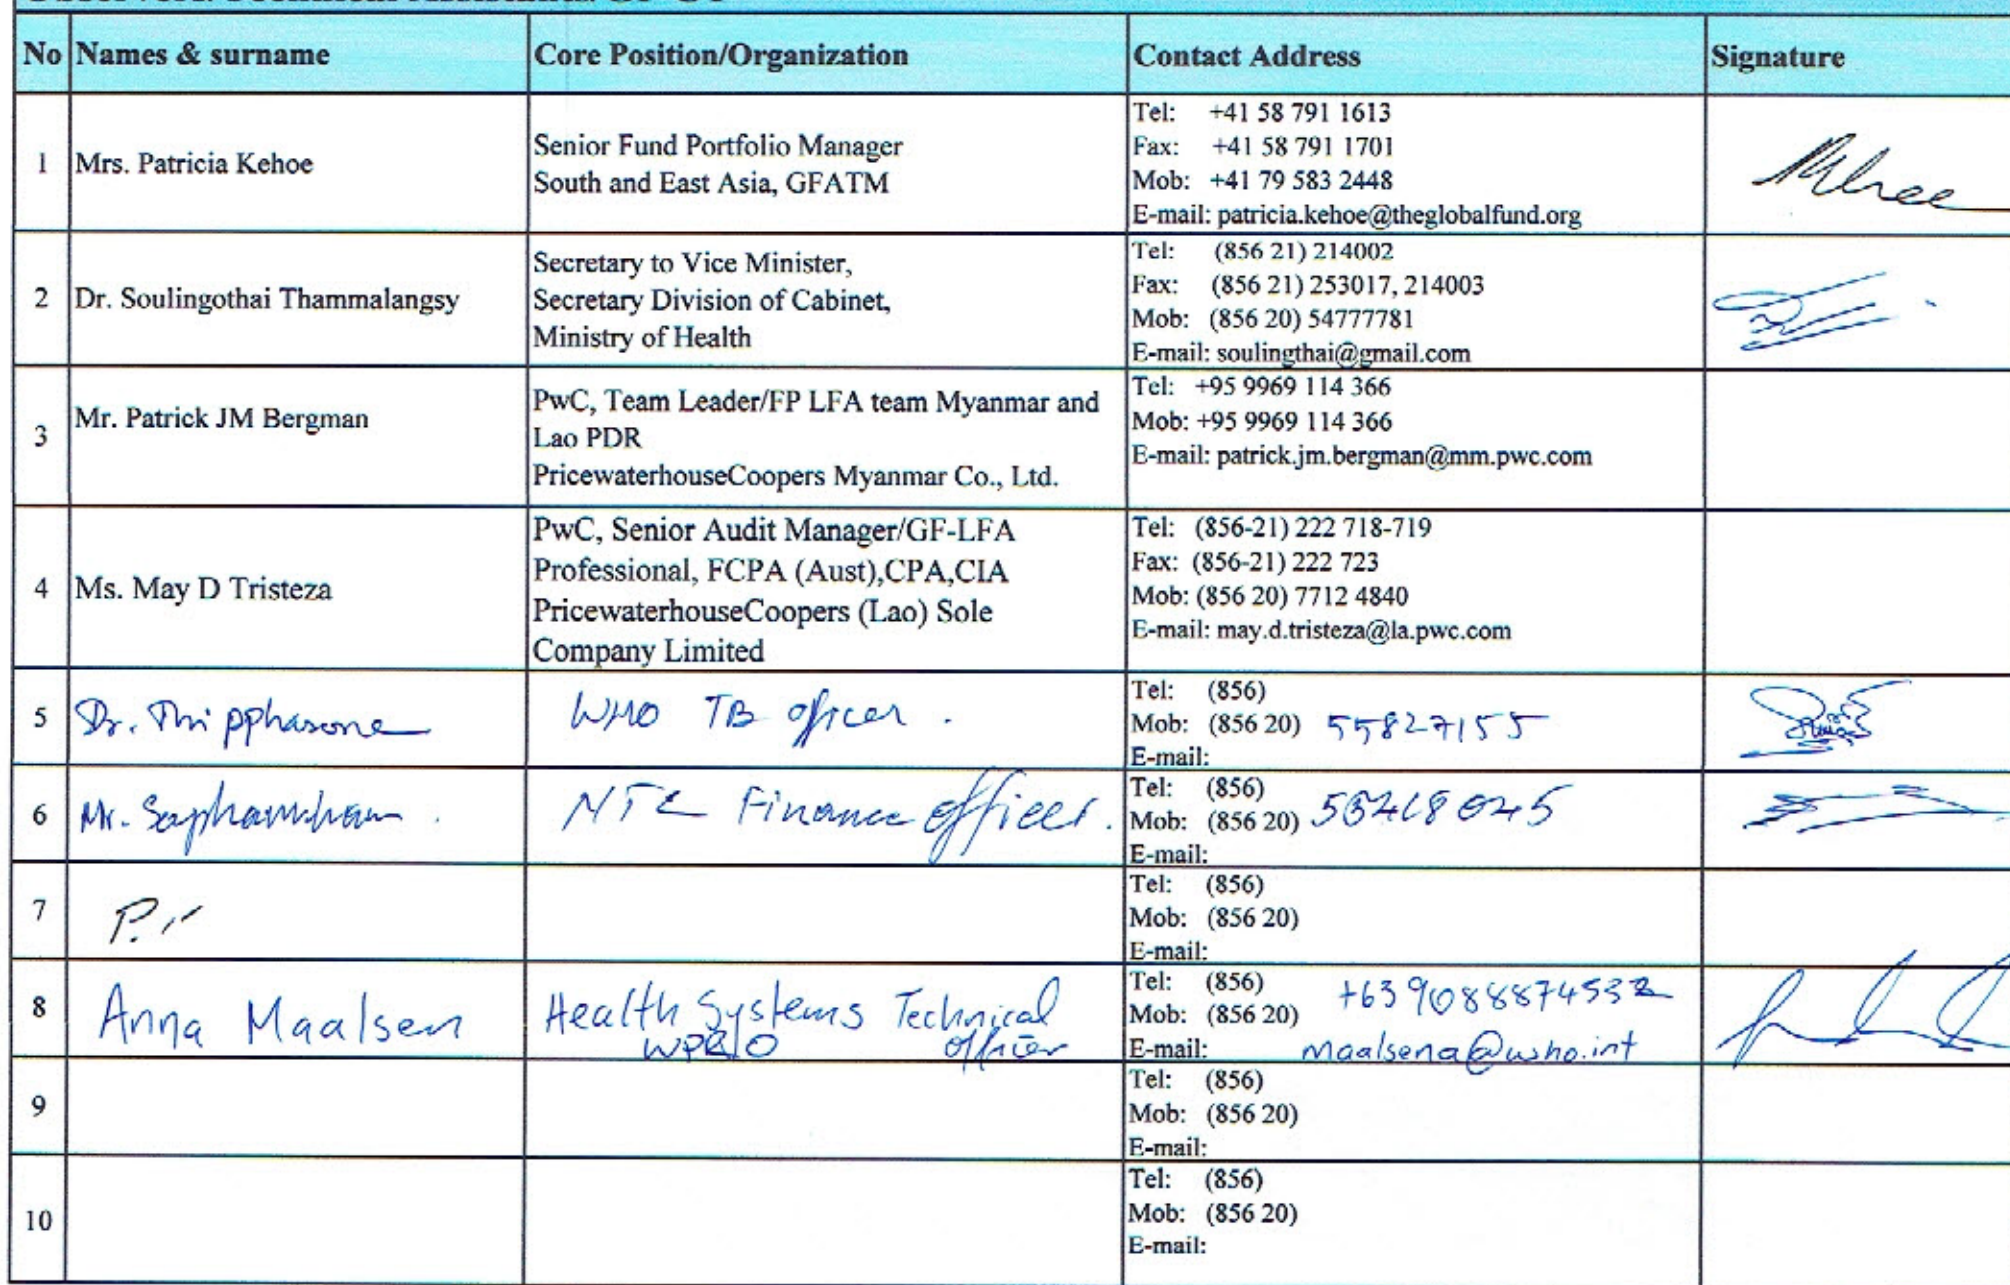 No Names & surname Core Position/Organization Contact Address Signature
1 Mrs. Patricia Kehoe
Senior Fund Portfolio Manager
South and East Asia, GFATM
Tel: +41 58 791 1613
Fax: +41 58 791 1701
Mob: +41 79 583 2448
E-mail: patricia.kehoe@theglobalfund.org
2 Dr. Soulingothai Thammalangsy
Secretary to Vice Minister,
Secretary Division of Cabinet,
Ministry of Health
Tel: (856 21) 214002
Fax: (856 21) 253017, 214003
Mob: (856 20) 54777781
E-mail: soulingthai@gmail.com
3 Mr. Patrick JM Bergman
PwC, Team Leader/FP LFA team Myanmar and
Lao PDR
PricewaterhouseCoopers Myanmar Co., Ltd.
Tel: +95 9969 114 366
Mob: +95 9969 114 366
E-mail: patrick.jm.bergman@mm.pwc.com
4 Ms. May D Tristeza
PwC, Senior Audit Manager/GF-LFA
Professional, FCPA (Aust),CPA,CIA
PricewaterhouseCoopers (Lao) Sole
Company Limited
Tel: (856-21) 222 718-719
Fax: (856-21) 222 723
Mob: (856 20) 7712 4840
E-mail: may.d.tristeza@la.pwc.com
5 Dr. Thipphasone
WHO TB officer.
Tel: (856)
Mob: (856 20) 55827155
E-mail:
6 Mr.
Finance officer.
Tel: (856)
Mob: (856 20)
E-mail:
7
Tel: (856)
Mob: (856 20)
E-mail:
8 Anna Maalsen
Health Systems Technical
officer
Tel: (856)
Mob: (856 20)
E-mail: maalsena@who.int
9
Tel: (856)
Mob: (856 20)
E-mail:
10
Tel: (856)
Mob: (856 20)
E-mail: